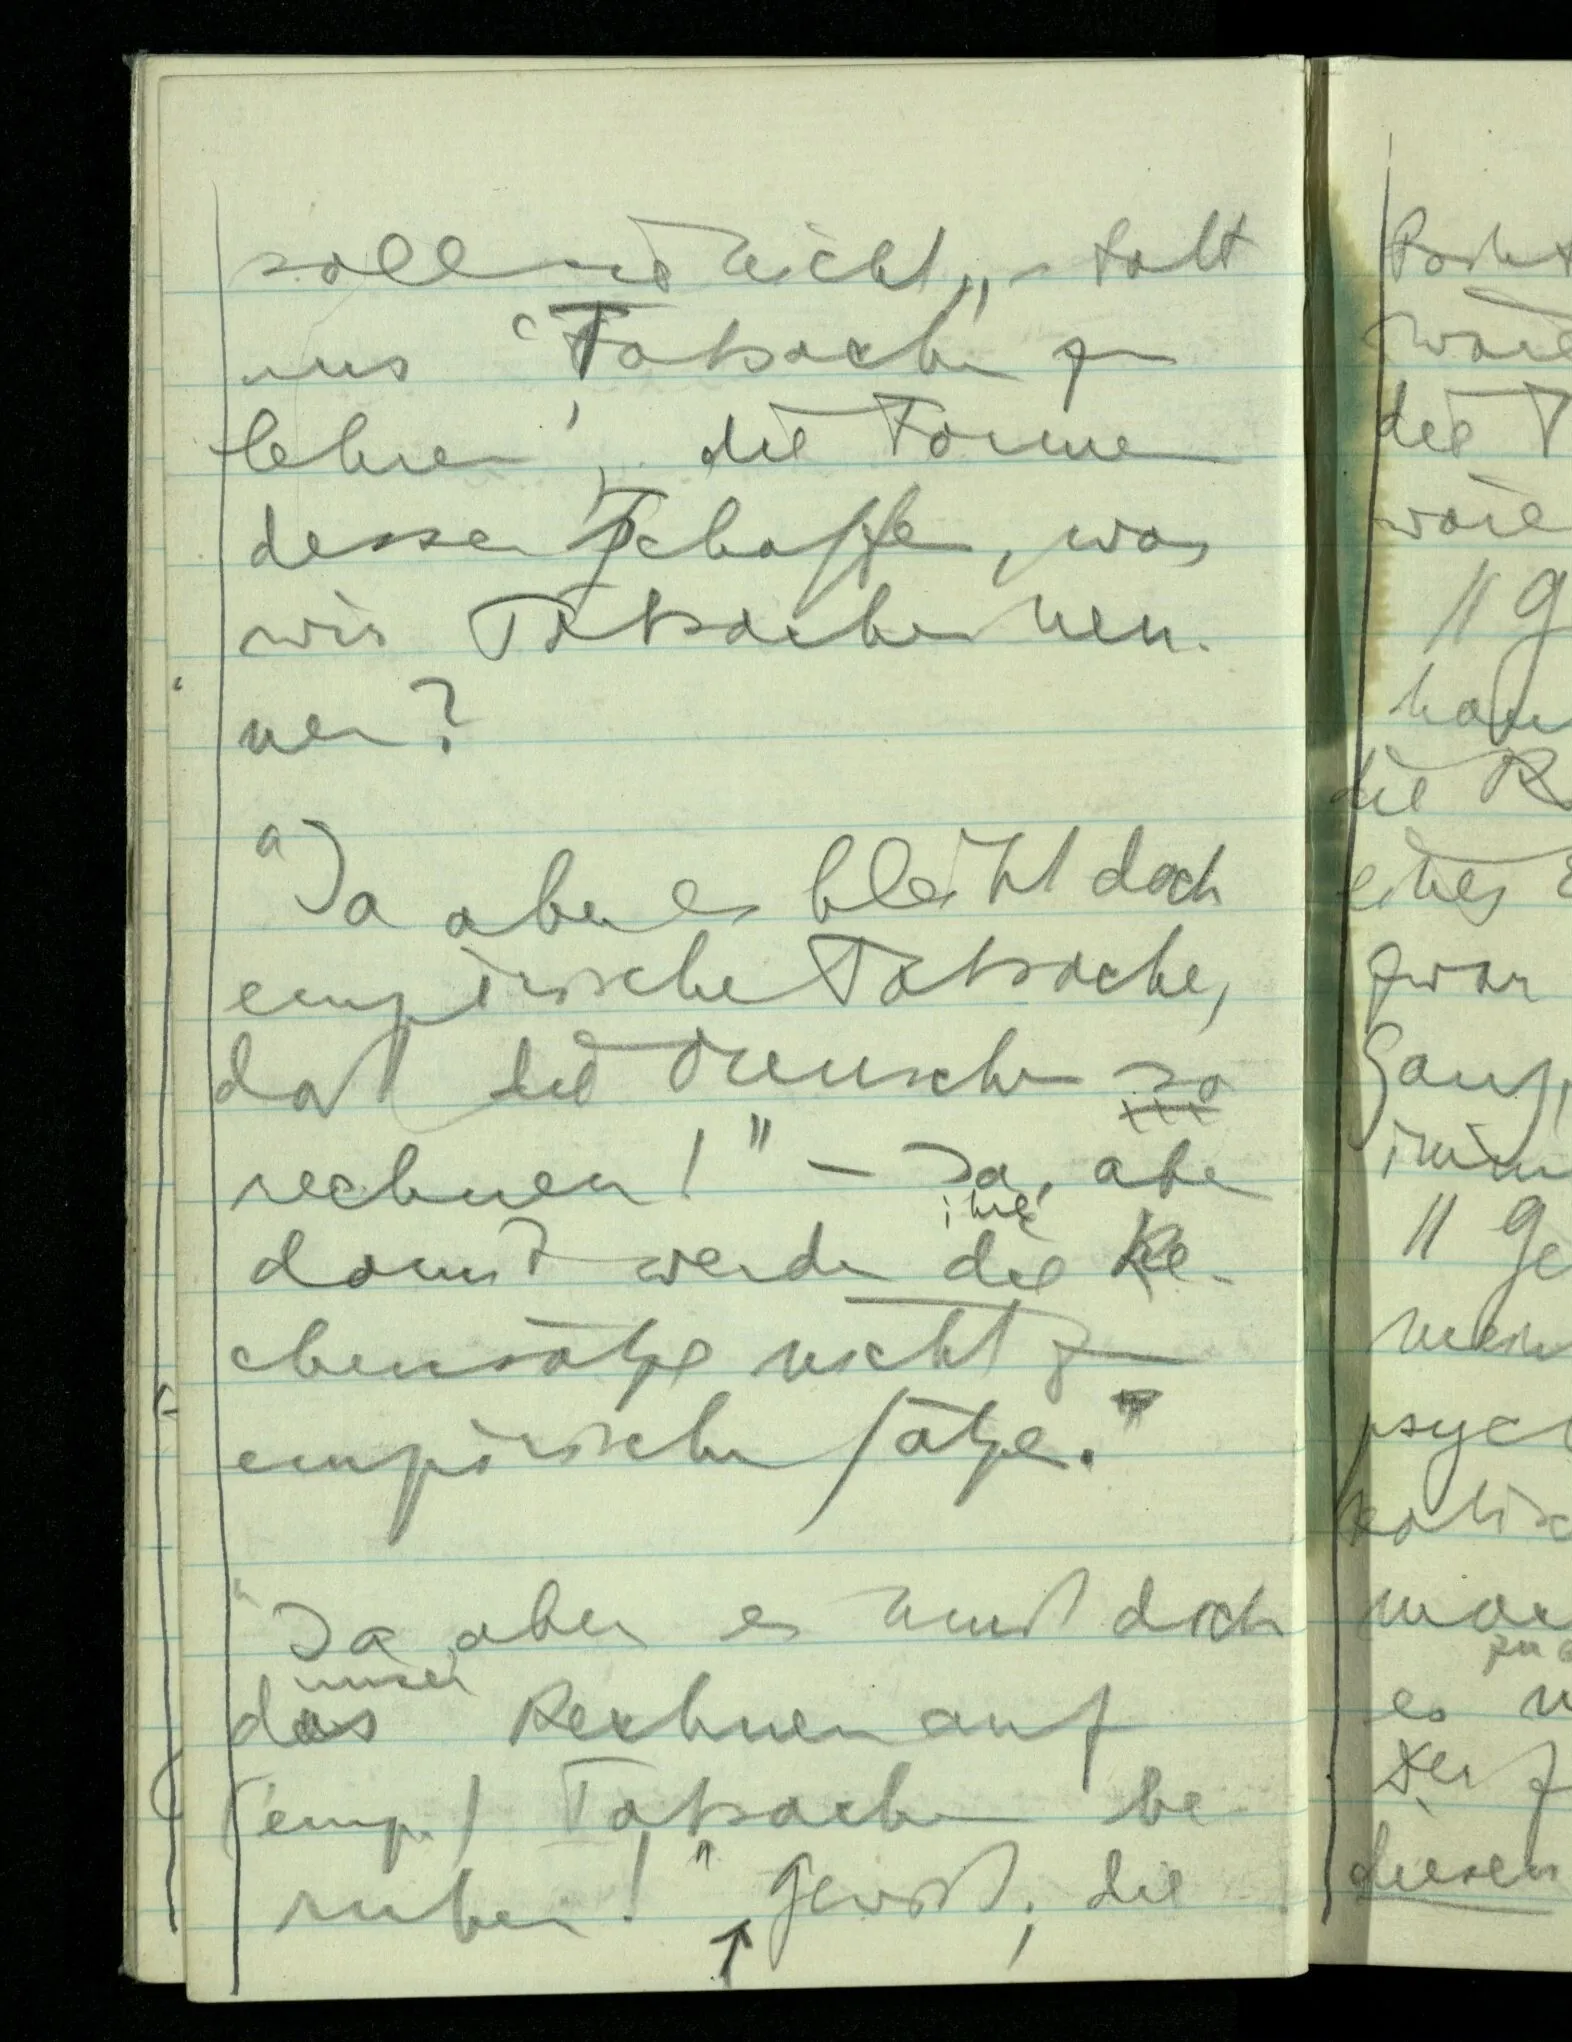 soll sie nicht, statt
uns 'Tatsachen zu
lehren', die Formen
dessen schaffen, was
wir Tatsachen nen-
nen?
"Ja aber es bleibt doch
empirische Tatsache,
daß die Menschen so
rechnen!" – Ja, aber
ihre
damit werden die Re-
chensätze nicht zu
empirischen Sätze."
"Ja aber es muß doch
unser
das Rechnen auf
(emp.) Tatsachen be-
ruhen!" Gewiß; die
wäre
die T
wäre
// G
die R
eines
zwar
Gang,
// Ge
psych
es
diesen